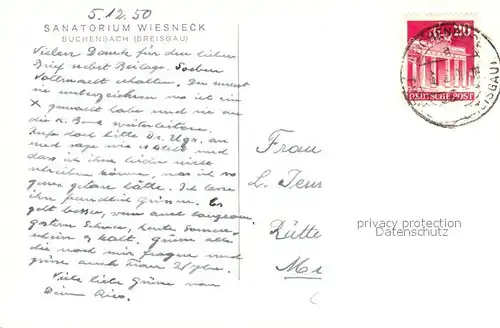 5.12.50
SANATORIUM WIESNECK
BUCHENBACH (BREISGAU)
Vielen Dank für den lieben
Brief nebst Beilage. Soeben
Vollmacht erhalten. Du musst
sie unterzeichnen wo ich ein
X gemacht habe und sie an
die K. Bank weiterleiten.
Rufe doch bitte Dr. an
und sage wie es steht und
dass ich ihm leider nicht
schreiben könne, was ich so
gerne getan hätte. Ich lasse
ihn freundlich grüssen. Es
geht besser, wenn auch langsam.
gestern Schnee, heute Sonnen-
schein & kalt. Grüsse alle
die nach mir fragen und
grüsse auch Frau
Viele liebe Grüsse von
Dein
20
DEUTSCHE POST
Frau
L. Jens
Rütte
privacy protection
Datenschutz